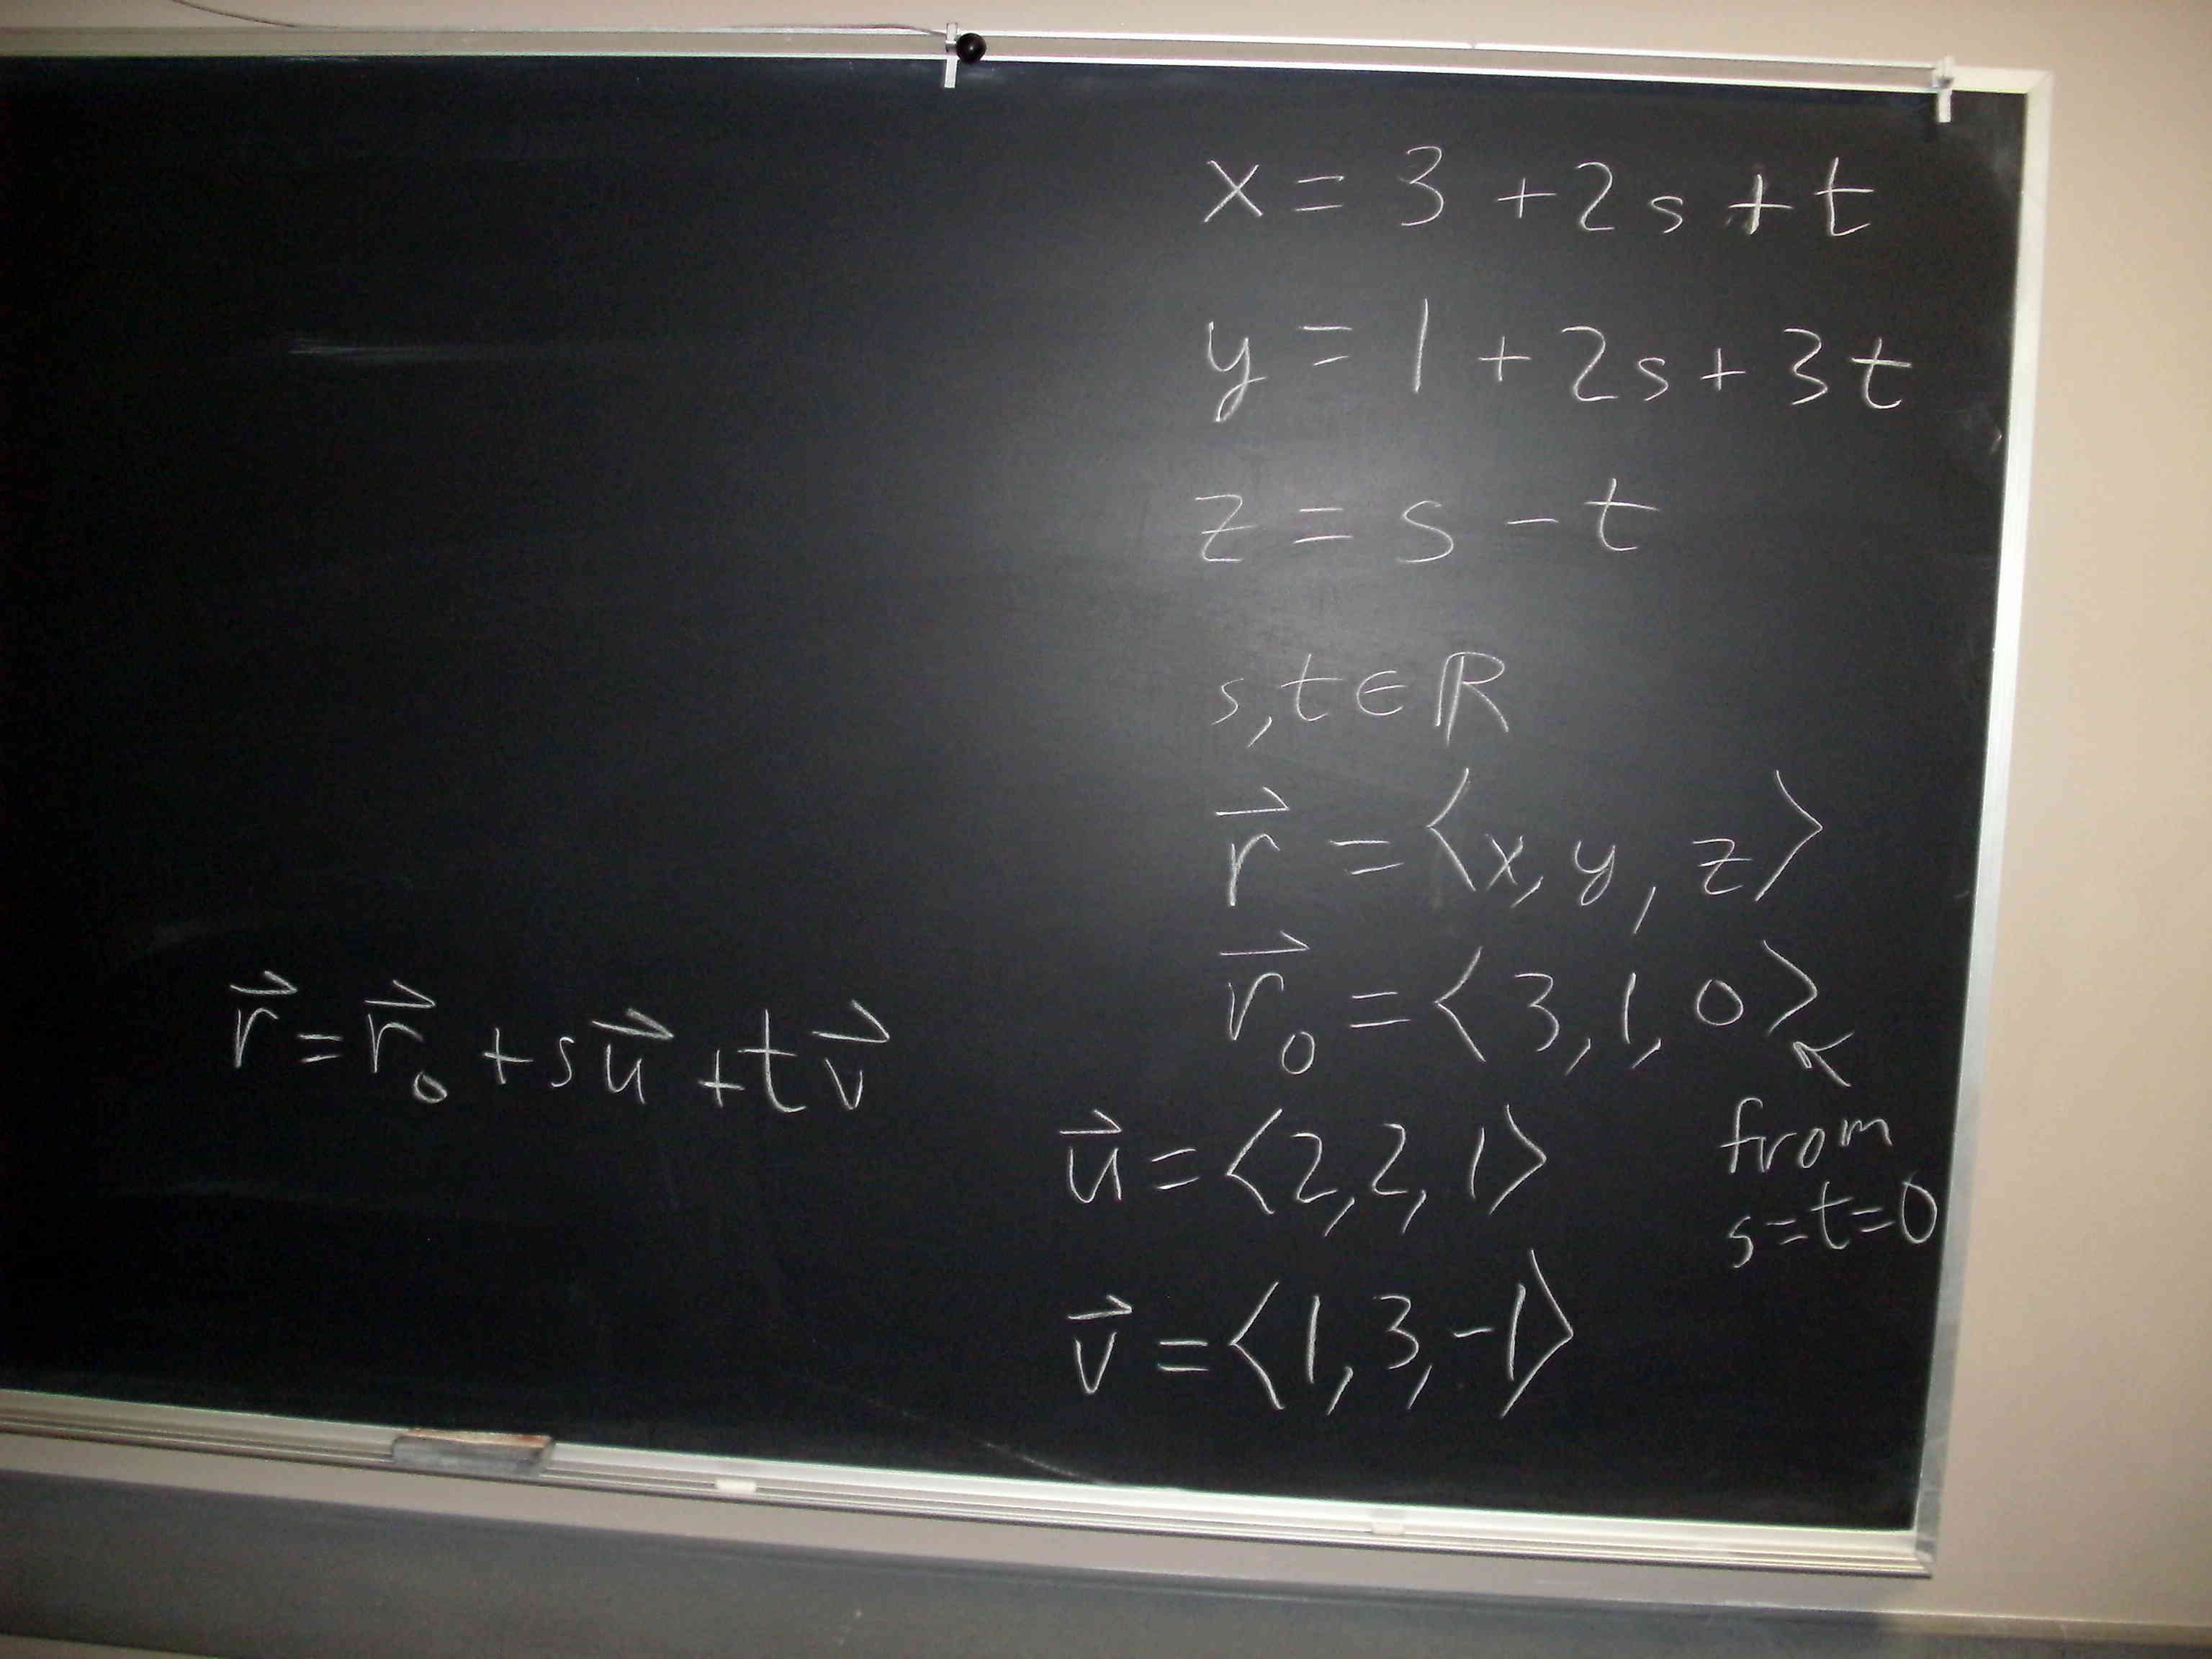 x = 3 + 2s + t
y = 1 + 2s + 3t
z = s - t
s, t ∈ ℝ
r⃗ = ⟨x, y, z⟩
r⃗₀ = ⟨3, 1, 0⟩ ↖
from
s=t=0
r⃗ = r⃗₀ + su⃗ + tv⃗
u⃗ = ⟨2, 2, 1⟩
v⃗ = ⟨1, 3, -1⟩